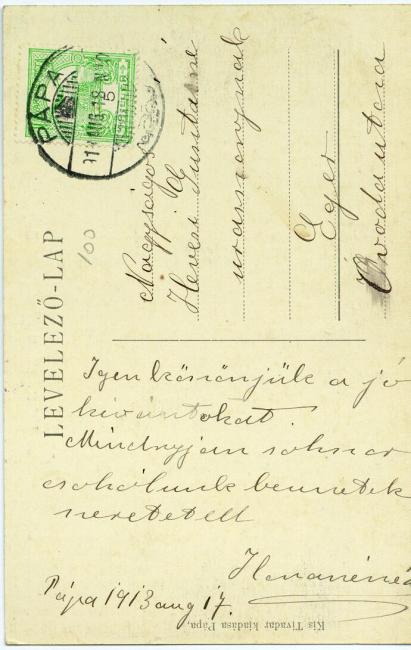 LEVELEZŐ-LAP
PÁPA
100
Nagyságos
Hevesi
urasszonynak
Eger
Óvoda utca
Igen köszönjük a jó
kivántokat.
Mindnyjan sokszor
csokólunk bennetek
szeretetell
Pápa 1913 aug 17.
Kis Tivadar kiadása Pápa,